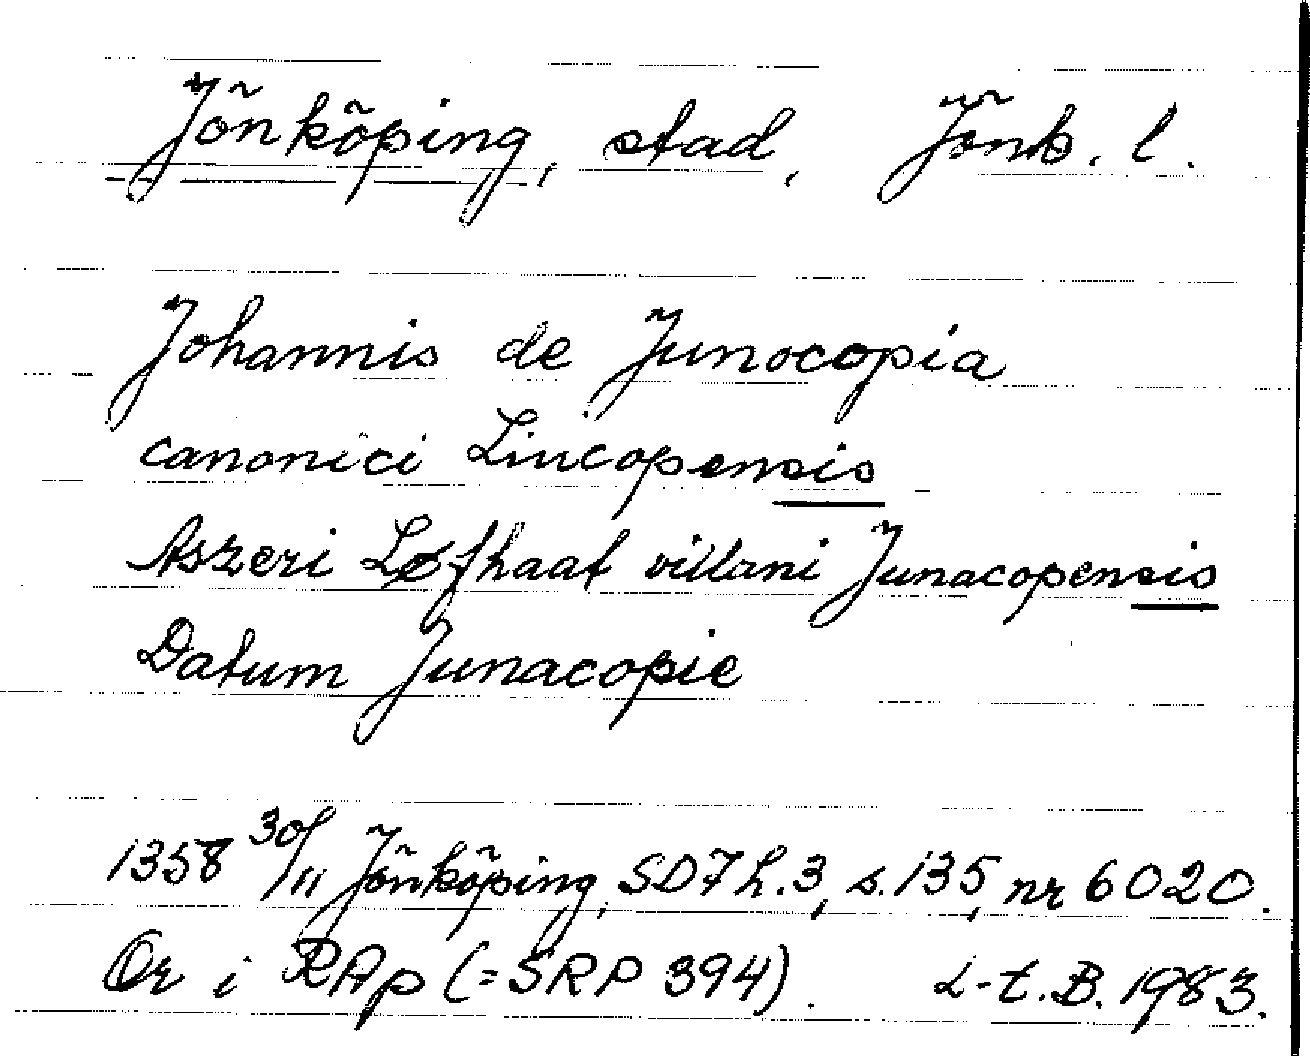 Jönköping, stad, Jönk. l.
Johannis de Junocopia
canonici Lincopensis
Aszeri Løfhaat villani Junacopensis
Datum Junacopie
1358 30/11 Jönköping, SD7 h.3, s.135, nr 6020.
Or i RAp (=SRP 394). L-t.B. 1983.